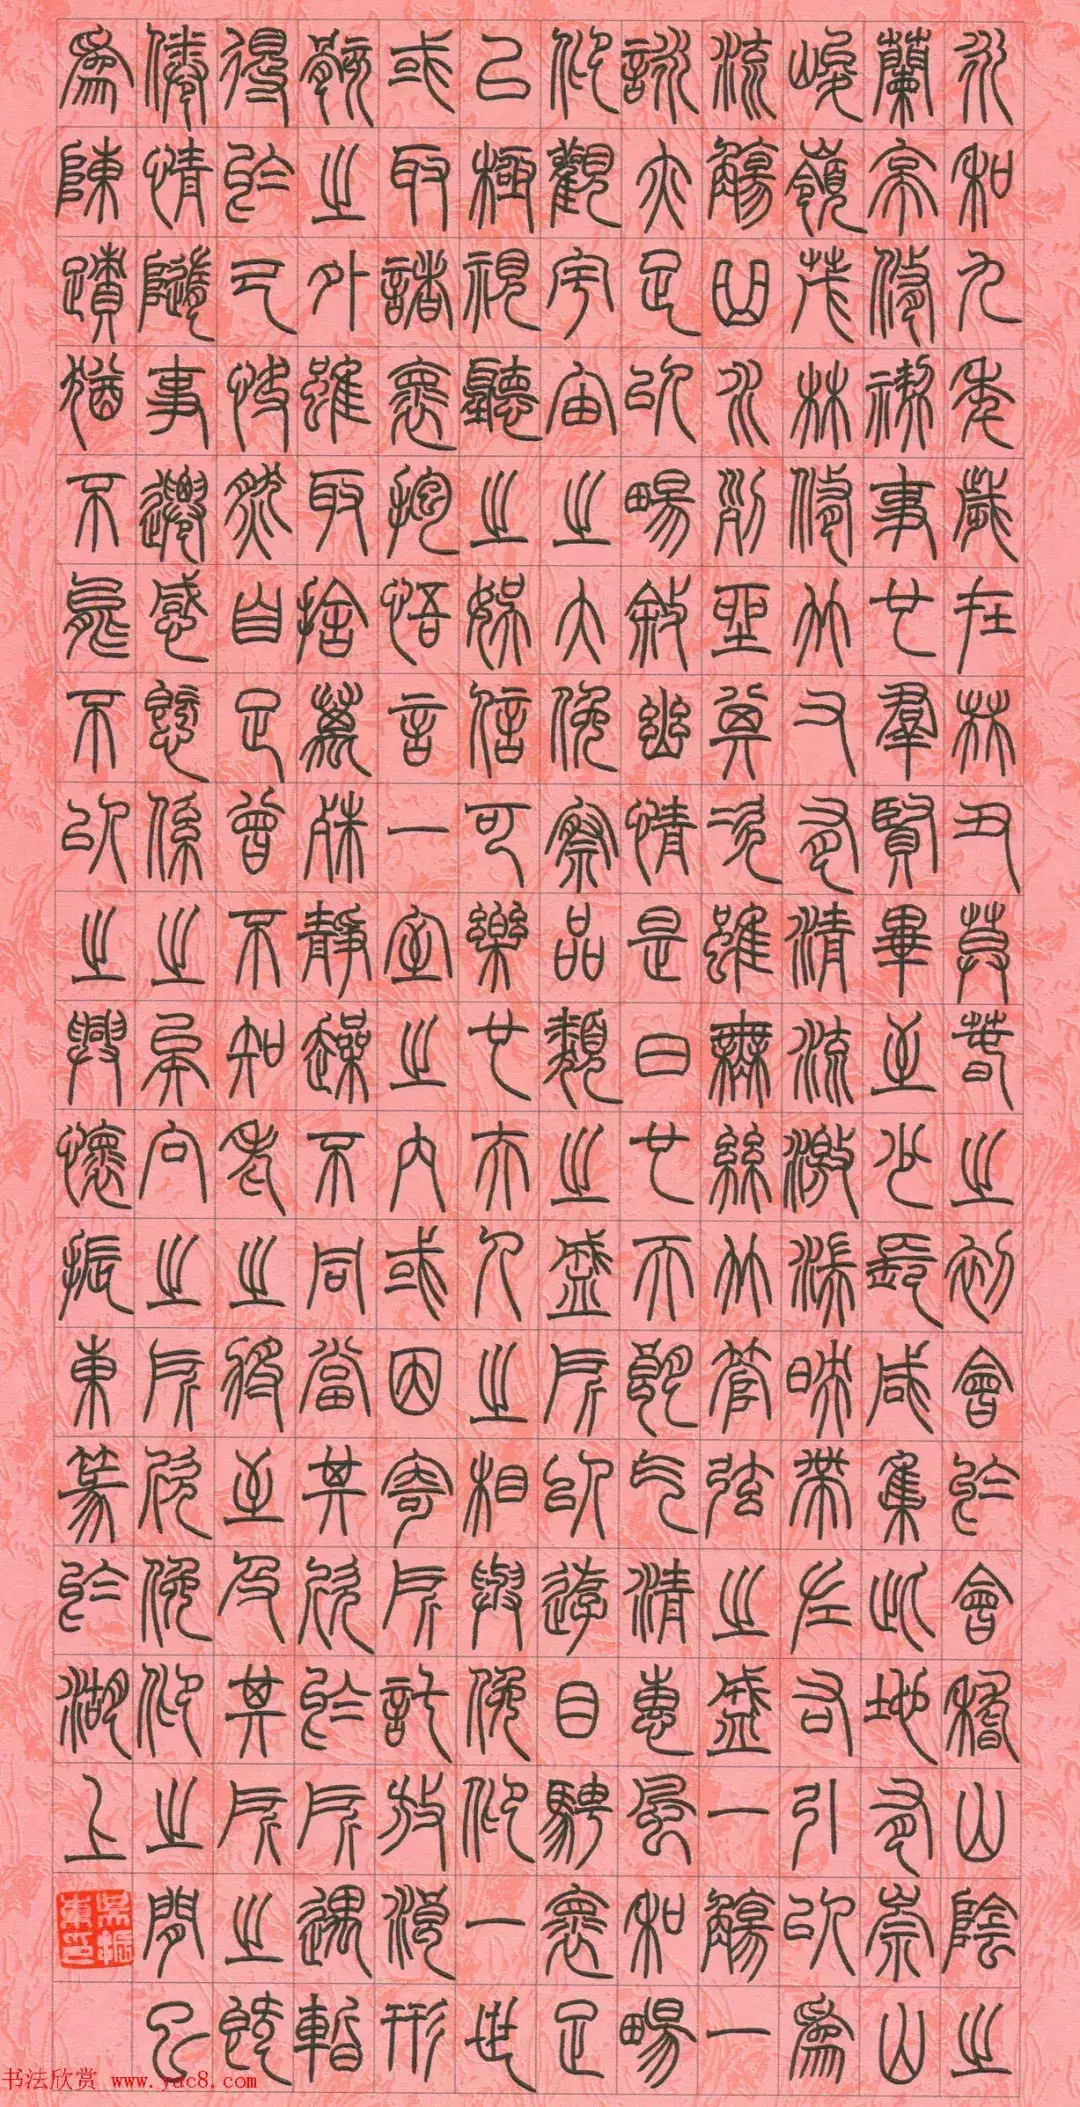 永和九年歲在癸丑莫春之初會於會稽山陰之
蘭亭修禊事也群賢畢至少長咸集此地有崇山
峻嶺茂林修竹又有清流激湍映帶左右引以為
流觴曲水列坐其次雖無絲竹管弦之盛一觴一
詠亦足以暢敘幽情是日也天朗氣清惠風和暢
仰觀宇宙之大俯察品類之盛所以遊目騁懷足
以極視聽之娛信可樂也夫人之相與俯仰一世
或取諸懷抱悟言一室之內或因寄所託放浪形
骸之外雖取捨萬殊靜躁不同當其欣於所遇暫
得於己快然自足曾不知老之將至及其所之既
倦情隨事遷感慨係之矣向之所欣俯仰之間已
為陳蹟猶不能不以之興懷振東篆於湖上
吳振東印
书法欣赏 www.yac8.com